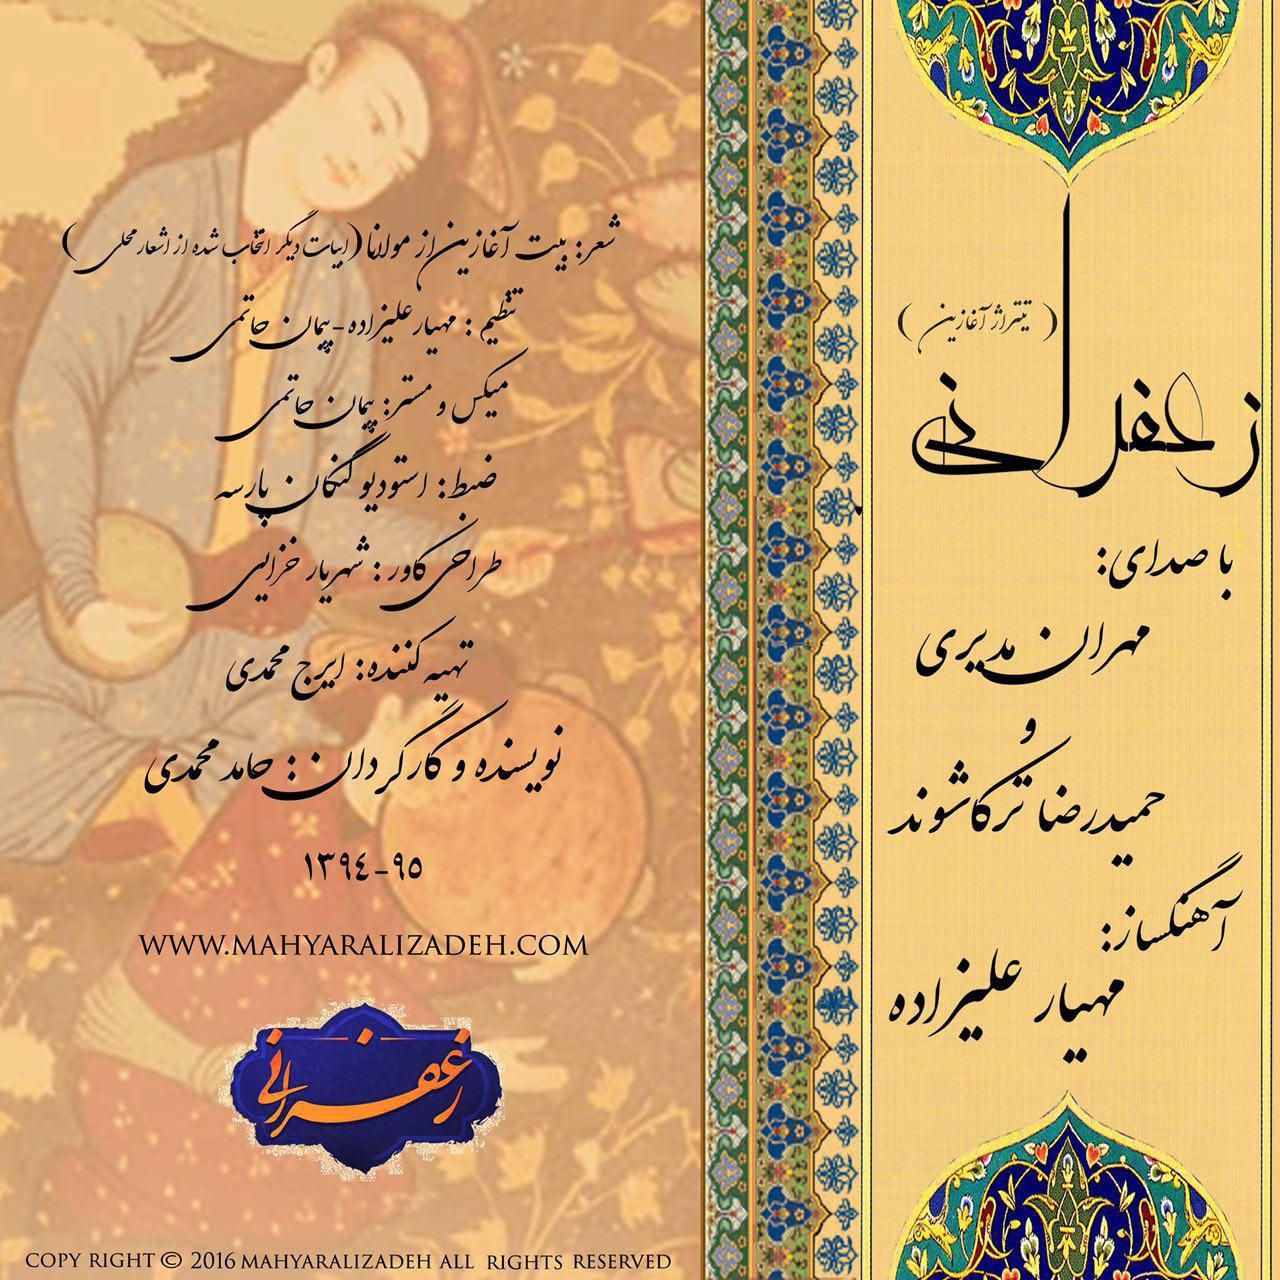 زعفرانی
( تیتراژ آغازین )
با صدای:
مهران مدیری
و
حمیدرضا ترکاشوند
آهنگساز:
مهیار علیزاده
شعر: بیت آغازین از مولانا (ابیات دیگر انتخاب شده از اشعار محلی )
تنظیم : مهیار علیزاده - پیمان حاتمی
میکس و مستر: پیمان حاتمی
ضبط: استودیو گنگان پارسه
طراحی کاور : شهریار خزایی
تهیه کننده: ایرج محمدی
نویسنده و کارگردان : حامد محمدی
۱۳۹٤-۹۵
WWW.MAHYARALIZADEH.COM
زعفرانی
COPY RIGHT © 2016 MAHYARALIZADEH ALL RIGHTS RESERVED